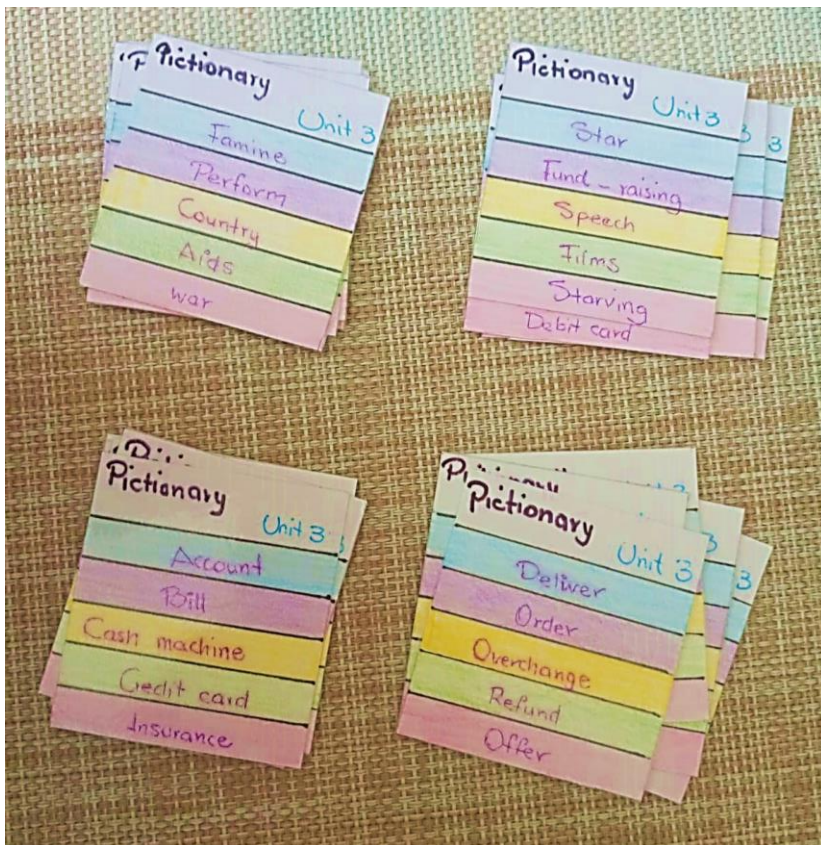 Pictionary
Unit 3
Famine
Perform
Country
Aids
war
Pictionary
Unit 3
3
3
Star
Fund-raising
Speech
Films
Starving
Debit card
Pictionary
Unit 3
Account
Bill
Cash machine
Credit card
Insurance
Pictionary
Unit 3
3
3
Deliver
Order
Overchange
Refund
Offer